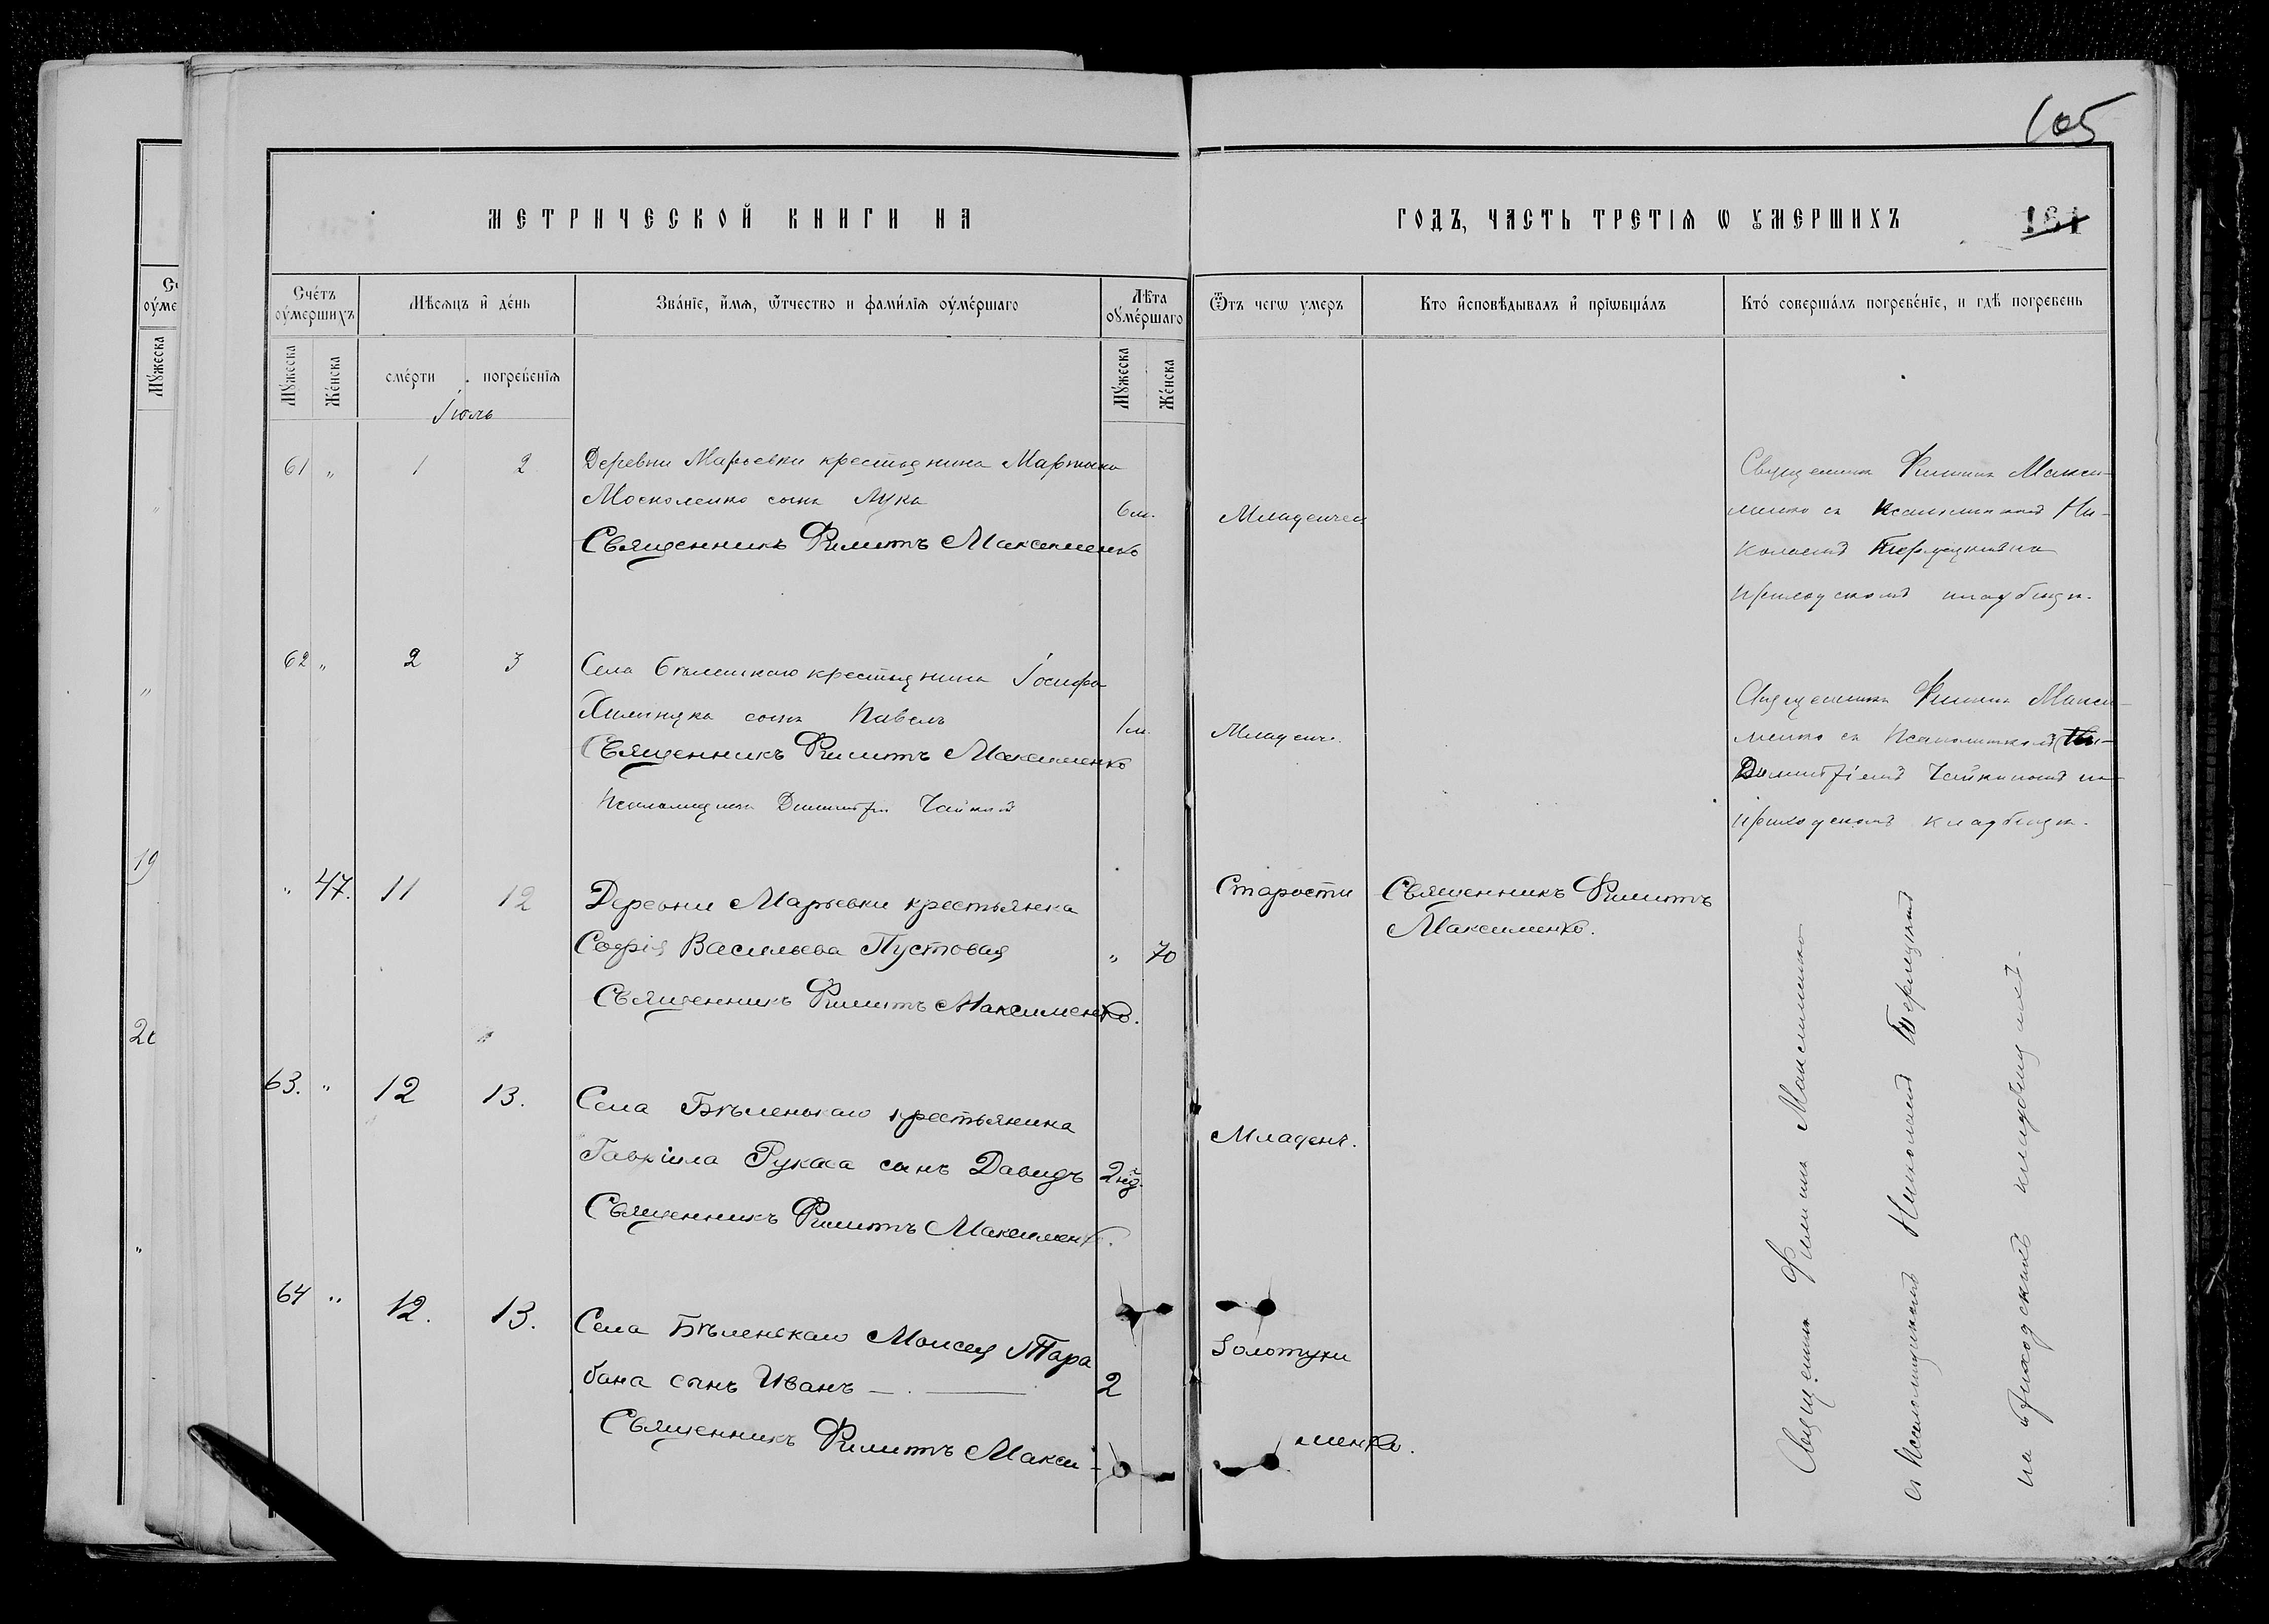 105
МЕТРИЧЕСКОЙ КНИГИ НА
ГОДЪ, ЧАСТЬ ТРЕТІЯ Ѡ ОУМЕРШИХЪ
Счетъ оумершихъ
Мѣсяцъ и день
Званіе, имя, ѿтчество и фамилія оумершаго
Лѣта оумершаго
Ѿтъ чегѡ умеръ
Кто исповѣдывалъ и пріѡбщалъ
Кто совершалъ погребеніе, и гдѣ погребенъ
Мужеска
Женска
смерти
погребенія
Мужеска
Женска
Іюль
61 " 1 2
Деревни Марьевки крестьянина
Москаленко сынъ Лука
6 м.
Священникъ Филиппъ Максименко
Священникъ Филиппъ Макси-
менко съ Псаломщикомъ Ни-
колаемъ
приходскомъ кладбищѣ.
62 " 2 3
Села Бѣленькаго крестьянина Іосифа
сынъ Павелъ
1 м.
Младенч.
Священникъ Филиппъ Максименко
Псаломщикъ Димитрій Чайкинъ
Священникъ Филиппъ Макси-
менко съ Псаломщикомъ
Димитріемъ Чайкинымъ на
приходскомъ кладбищѣ.
" 47. 11 12
Деревни Марьевки крестьянка
Софія Васильева Пустовая
" 70
Старости
Священникъ Филиппъ
Максименко.
Священникъ Филиппъ Максименко.
63. " 12 13.
Села Бѣленькаго крестьянина
Гавріила Рукаса сынъ Давидъ
2 нд.
Младенч.
Священникъ Филиппъ Максименко.
64 " 12. 13.
Села Бѣленькаго Моисея Тара
бана сынъ Иванъ
2
Золотухи
Священникъ Филиппъ Макси-
менко.
Священникъ Филиппъ Максименко
съ Псаломщикомъ Николаемъ
на приходскомъ кладбищахъ.
19
20